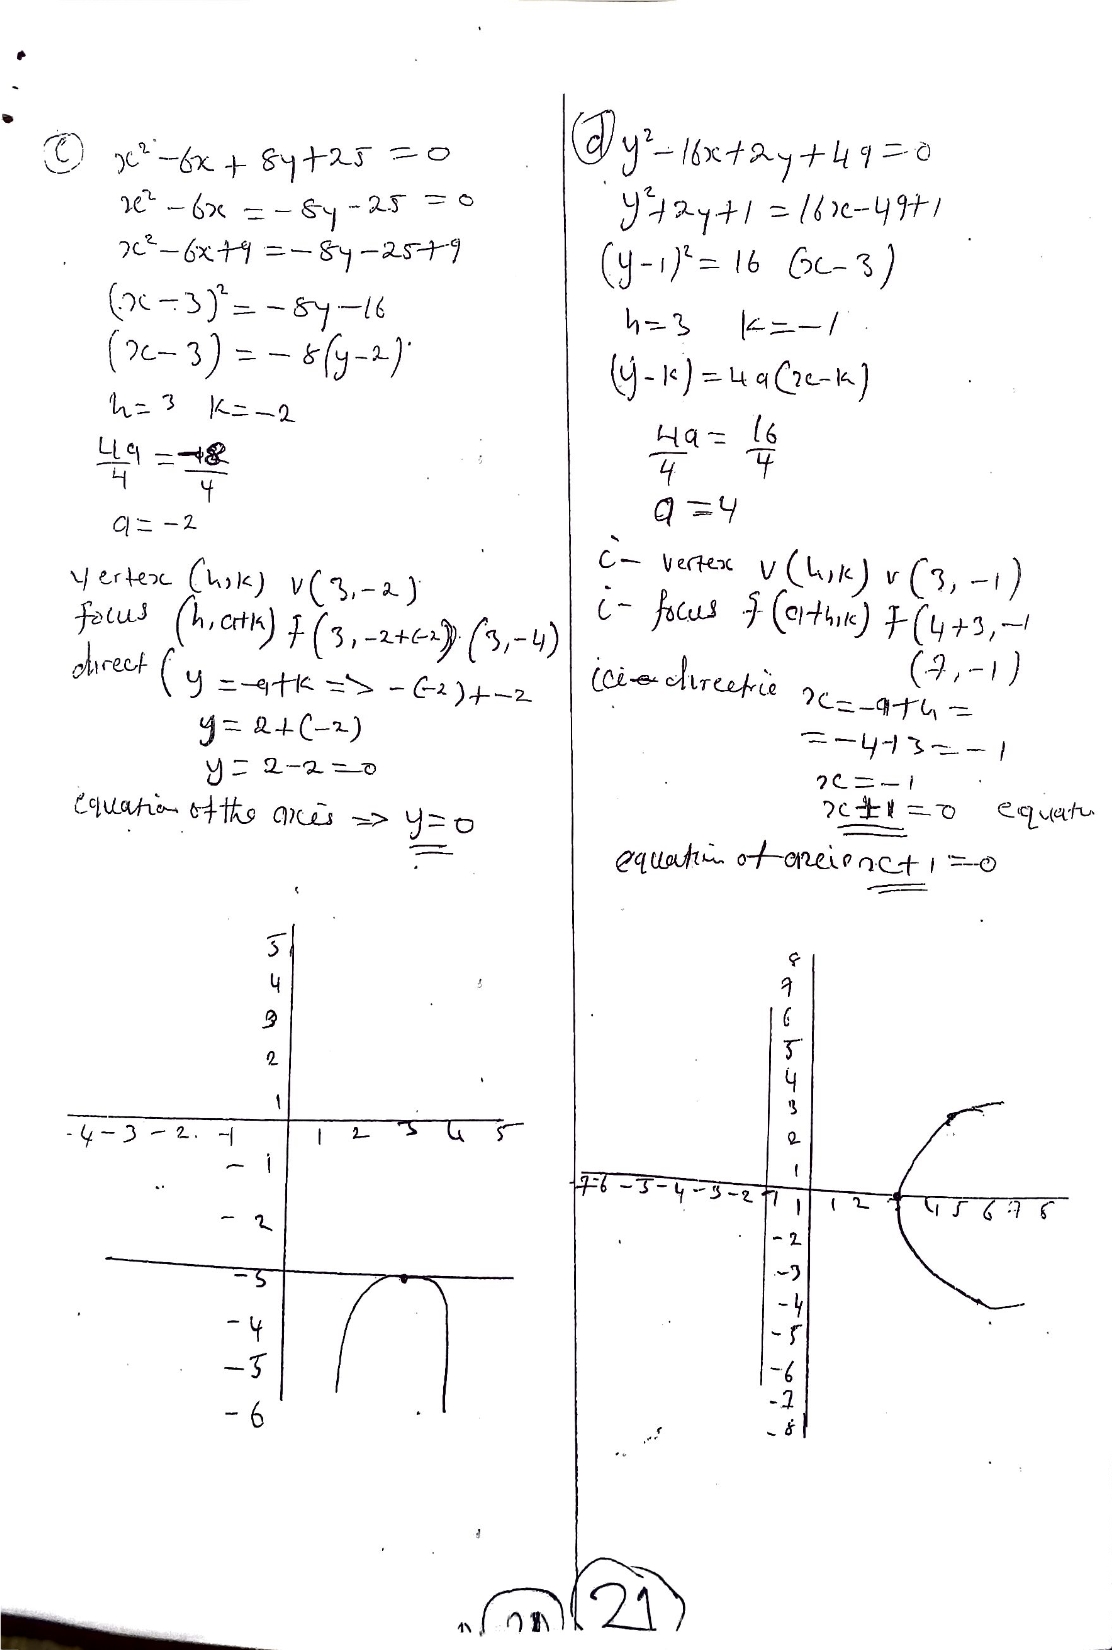 (c) x² - 6x + 8y + 25 = 0
x² - 6x = - 8y - 25 = 0
x² - 6x + 9 = - 8y - 25 + 9
(x - 3)² = - 8y - 16
(x - 3) = - 8(y - 2)
h = 3 k = -2
4a/4 = -8/4
a = -2
vertex (h,k) v(3,-2)
focus (h, a+k) f(3, -2+(-2)) (3,-4)
direct (y = -a+k => -(-2)+-2
y = 2+(-2)
y = 2-2=0
equation of the axies => y=0
5
4
3
2
1
-4 -3 -2. -1 1 2 3 4 5
- 1
- 2
-3
-4
-5
-6
(d) y² - 16x + 2y + 49 = 0
y² + 2y + 1 = 16x - 49 + 1
(y-1)² = 16 (x - 3)
h = 3 k = -1
(y-k) = 4a(x-k)
4a/4 = 16/4
a = 4
i- vertex v(h,k) v(3,-1)
i- focus f(a+h,k) f(4+3,-1
(7,-1)
directrie x=-a+h=
=-4+3=-1
x=-1
x+1=0
equation of axie x+1=0
8
7
6
5
4
3
2
1
7-6 -5-4-3-2 1 1 1 2 3 4 5 6 7 8
-2
-3
-4
-5
-6
-7
-8
21